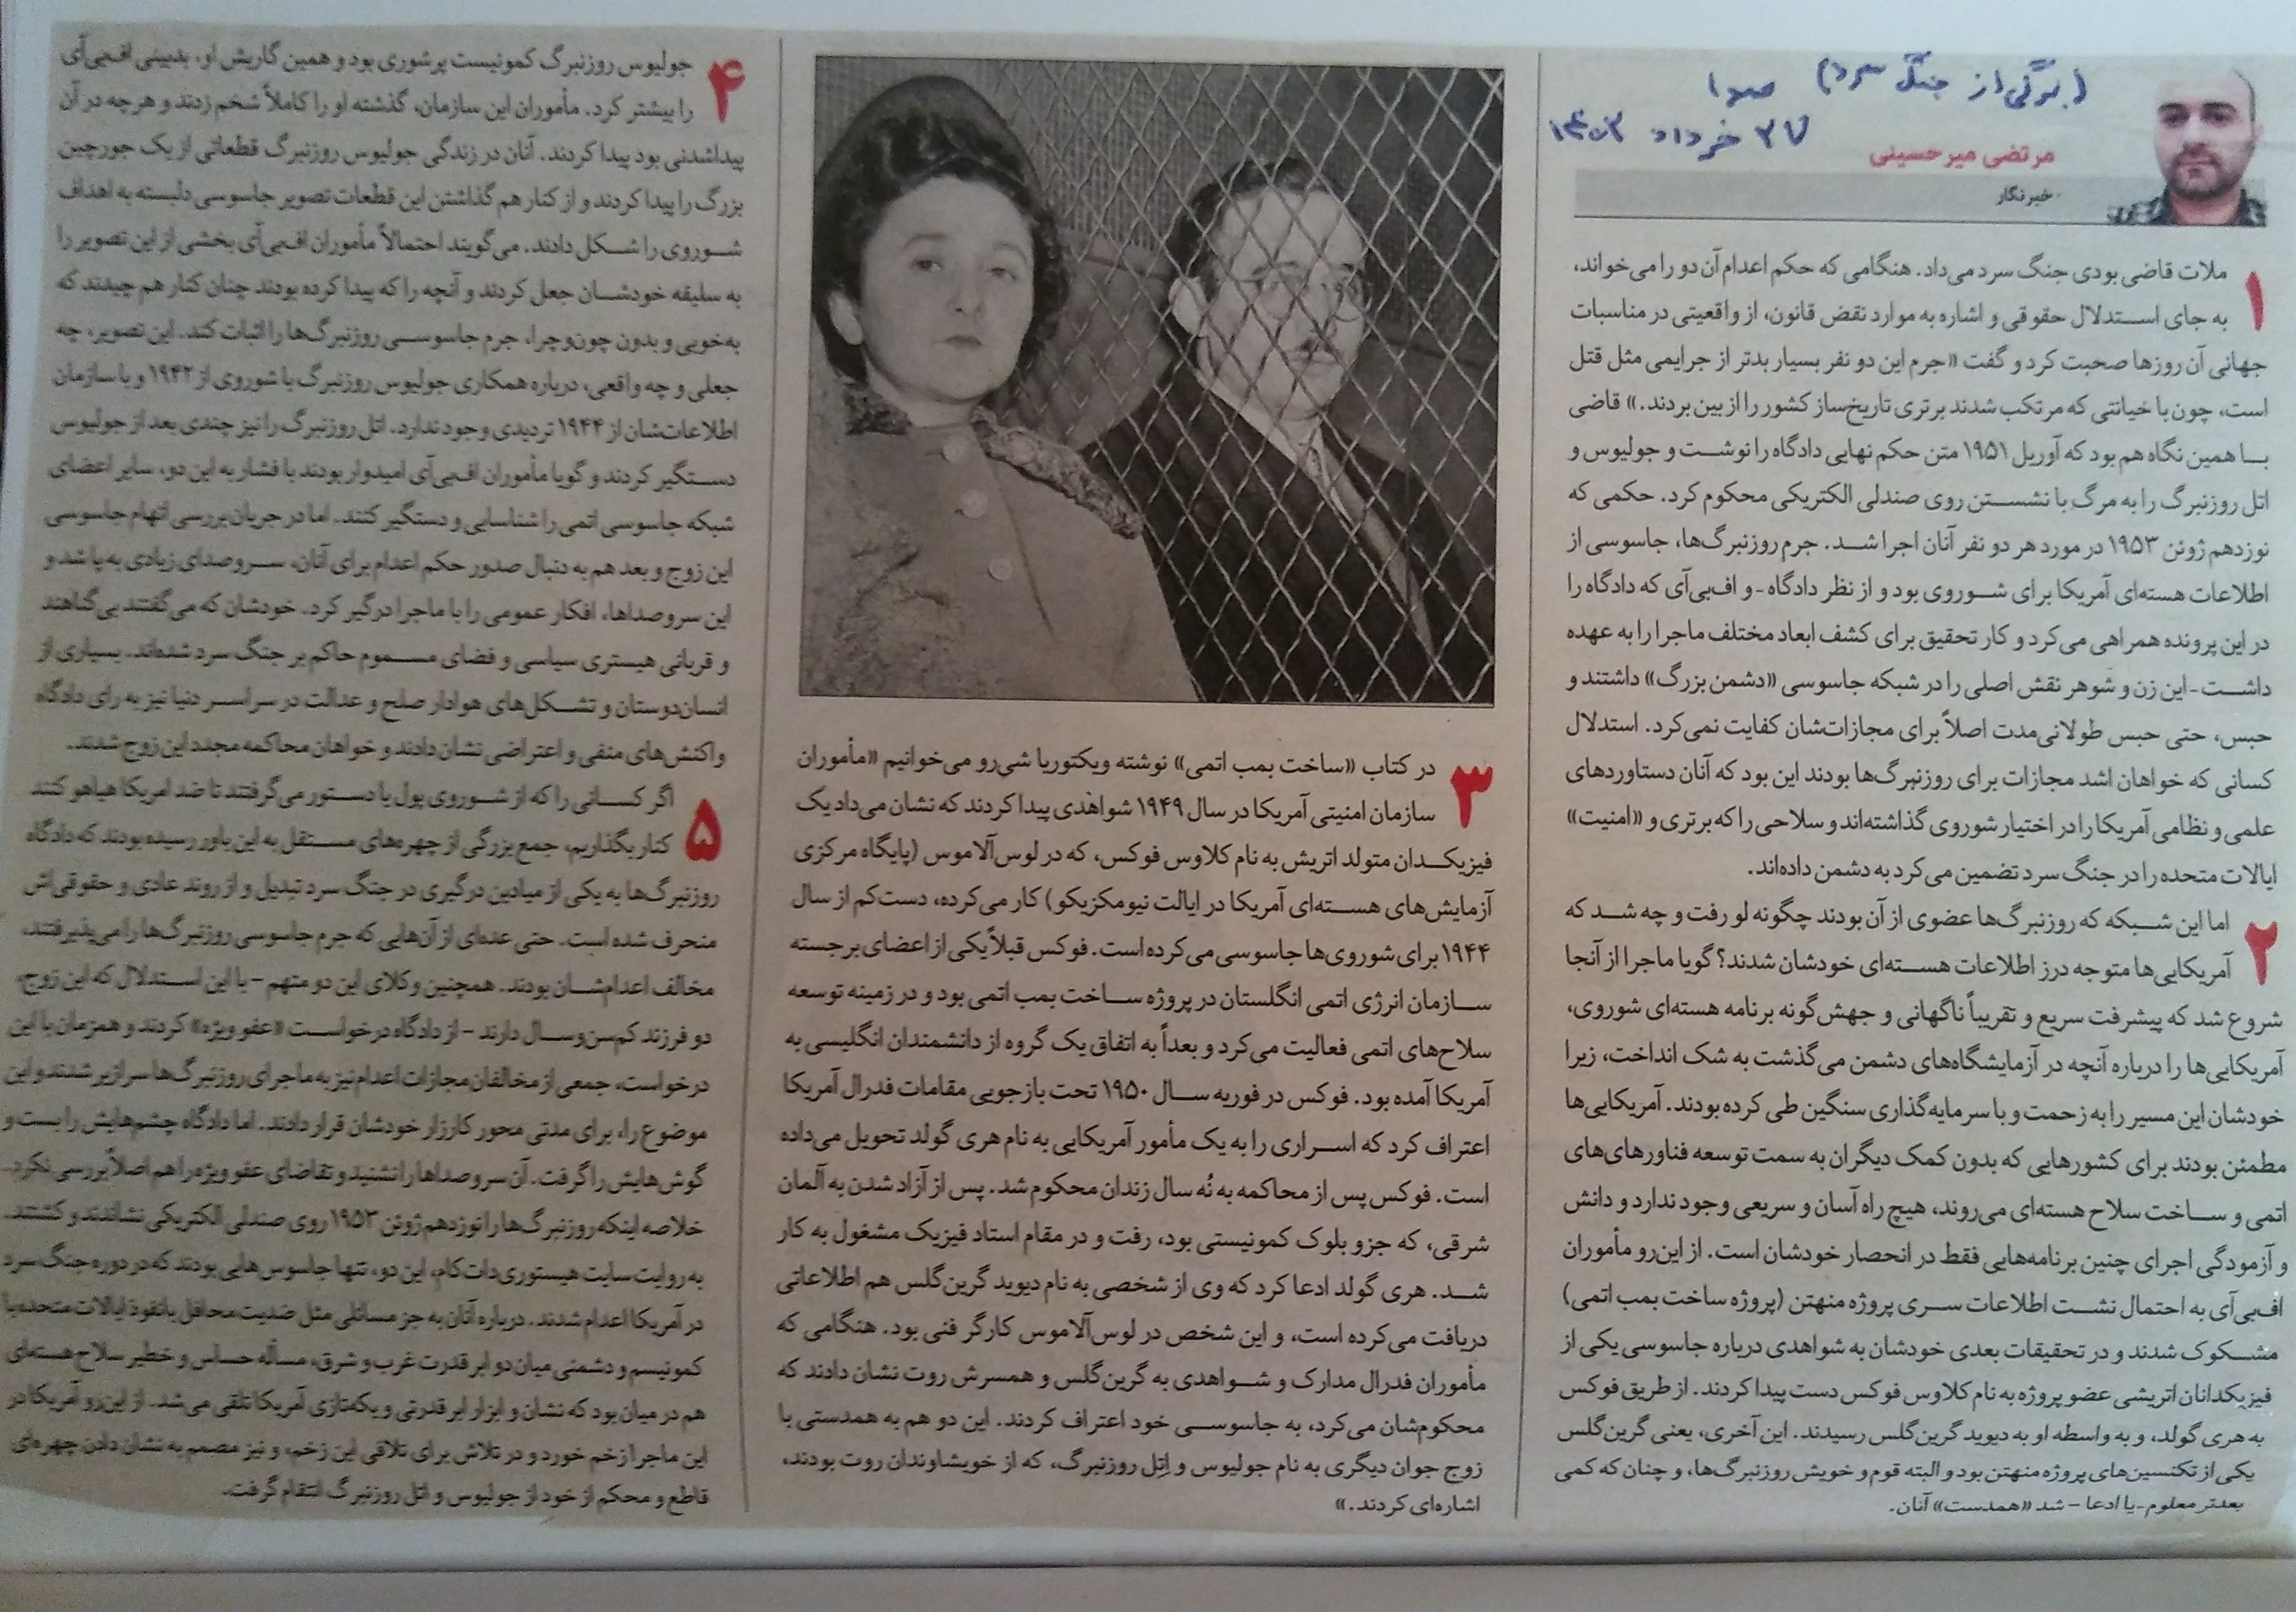 (برگی از جنگ سرد) صدا
۲۷ خرداد ۱۴۰۳
مرتضی میرحسینی
خبرنگار
۱
ملات قاضی بودی جنگ سرد می‌داد. هنگامی که حکم اعدام آن دو را می‌خواند،
به جای استدلال حقوقی و اشاره به موارد نقض قانون، از واقعیتی در مناسبات
جهانی آن روزها صحبت کرد و گفت «جرم این دو نفر بسیار بدتر از جرایمی مثل قتل
است، چون با خیانتی که مرتکب شدند برتری تاریخ‌ساز کشور را از بین بردند.» قاضی
با همین نگاه هم بود که آوریل ۱۹۵۱ متن حکم نهایی دادگاه را نوشت و جولیوس و
اتل روزنبرگ را به مرگ با نشستن روی صندلی الکتریکی محکوم کرد. حکمی که
نوزدهم ژوئن ۱۹۵۳ در مورد هر دو نفر آنان اجرا شد. جرم روزنبرگ‌ها، جاسوسی از
اطلاعات هسته‌ای آمریکا برای شوروی بود و از نظر دادگاه - و اف‌بی‌آی که دادگاه را
در این پرونده همراهی می‌کرد و کار تحقیق برای کشف ابعاد مختلف ماجرا را به عهده
داشت - این زن و شوهر نقش اصلی را در شبکه جاسوسی «دشمن بزرگ» داشتند و
حبس، حتی حبس طولانی‌مدت اصلاً برای مجازات‌شان کفایت نمی‌کرد. استدلال
کسانی که خواهان اشد مجازات برای روزنبرگ‌ها بودند این بود که آنان دستاوردهای
علمی و نظامی آمریکا را در اختیار شوروی گذاشته‌اند و سلاحی را که برتری و «امنیت»
ایالات متحده را در جنگ سرد تضمین می‌کرد به دشمن داده‌اند.
۲
اما این شبکه که روزنبرگ‌ها عضوی از آن بودند چگونه لو رفت و چه شد که
آمریکایی‌ها متوجه درز اطلاعات هسته‌ای خودشان شدند؟ گویا ماجرا از آنجا
شروع شد که پیشرفت سریع و تقریباً ناگهانی و جهش‌گونه برنامه هسته‌ای شوروی،
آمریکایی‌ها را درباره آنچه در آزمایشگاه‌های دشمن می‌گذشت به شک انداخت، زیرا
خودشان این مسیر را به زحمت و با سرمایه‌گذاری سنگین طی کرده بودند. آمریکایی‌ها
مطمئن بودند برای کشورهایی که بدون کمک دیگران به سمت توسعه فناورهای‌های
اتمی و ساخت سلاح هسته‌ای می‌روند، هیچ راه آسان و سریعی وجود ندارد و دانش
و آزمودگی اجرای چنین برنامه‌هایی فقط در انحصار خودشان است. از این‌رو مأموران
اف‌بی‌آی به احتمال نشت اطلاعات سری پروژه منهتن (پروژه ساخت بمب اتمی)
مشکوک شدند و در تحقیقات بعدی خودشان به شواهدی درباره جاسوسی یکی از
فیزیکدانان اتریشی عضو پروژه به نام کلاوس فوکس دست پیدا کردند. از طریق فوکس
به هری گولد، و به واسطه او به دیوید گرین‌گلس رسیدند. این آخری، یعنی گرین‌گلس
یکی از تکنسین‌های پروژه منهتن بود و البته قوم و خویش روزنبرگ‌ها، و چنان که کمی
بعدتر معلوم - یا ادعا - شد «همدست» آنان.
۳
در کتاب «ساخت بمب اتمی» نوشته ویکتوریا شی‌رو می‌خوانیم «مأموران
سازمان امنیتی آمریکا در سال ۱۹۴۹ شواهدی پیدا کردند که نشان می‌داد یک
فیزیکدان متولد اتریش به نام کلاوس فوکس، که در لوس‌آلاموس (پایگاه مرکزی
آزمایش‌های هسته‌ای آمریکا در ایالت نیومکزیکو) کار می‌کرده، دست‌کم از سال
۱۹۴۴ برای شوروی‌ها جاسوسی می‌کرده است. فوکس قبلاً یکی از اعضای برجسته
سازمان انرژی اتمی انگلستان در پروژه ساخت بمب اتمی بود و در زمینه توسعه
سلاح‌های اتمی فعالیت می‌کرد و بعداً به اتفاق یک گروه از دانشمندان انگلیسی به
آمریکا آمده بود. فوکس در فوریه سال ۱۹۵۰ تحت بازجویی مقامات فدرال آمریکا
اعتراف کرد که اسراری را به یک مأمور آمریکایی به نام هری گولد تحویل می‌داده
است. فوکس پس از محاکمه به نُه سال زندان محکوم شد. پس از آزاد شدن به آلمان
شرقی، که جزو بلوک کمونیستی بود، رفت و در مقام استاد فیزیک مشغول به کار
شد. هری گولد ادعا کرد که وی از شخصی به نام دیوید گرین‌گلس هم اطلاعاتی
دریافت می‌کرده است، و این شخص در لوس‌آلاموس کارگر فنی بود. هنگامی که
مأموران فدرال مدارک و شواهدی به گرین‌گلس و همسرش روت نشان دادند که
محکوم‌شان می‌کرد، به جاسوسی خود اعتراف کردند. این دو هم به همدستی با
زوج جوان دیگری به نام جولیوس و اِتِل روزنبرگ، که از خویشاوندان روت بودند،
اشاره‌ای کردند.»
۴
جولیوس روزنبرگ کمونیست پرشوری بود و همین گرایش او، بدبینی اف‌بی‌آی
را بیشتر کرد. مأموران این سازمان، گذشته او را کاملاً شخم زدند و هرچه در آن
پیداشدنی بود پیدا کردند. آنان در زندگی جولیوس روزنبرگ قطعاتی از یک جورچین
بزرگ را پیدا کردند و از کنار هم گذاشتن این قطعات تصویر جاسوسی دلبسته به اهداف
شوروی را شکل دادند. می‌گویند احتمالاً مأموران اف‌بی‌آی بخشی از این تصویر را
به سلیقه خودشان جعل کردند و آنچه را که پیدا کرده بودند چنان کنار هم چیدند که
به‌خوبی و بدون چون‌وچرا، جرم جاسوسی روزنبرگ‌ها را اثبات کند. این تصویر، چه
جعلی و چه واقعی، درباره همکاری جولیوس روزنبرگ با شوروی از ۱۹۴۲ و با سازمان
اطلاعات‌شان از ۱۹۴۴ تردیدی وجود ندارد. اتل روزنبرگ را نیز چندی بعد از جولیوس
دستگیر کردند و گویا مأموران اف‌بی‌آی امیدوار بودند با فشار به این دو، سایر اعضای
شبکه جاسوسی اتمی را شناسایی و دستگیر کنند. اما در جریان بررسی اتهام جاسوسی
این زوج و بعد هم به دنبال صدور حکم اعدام برای آنان، سروصدای زیادی به پا شد و
این سروصداها، افکار عمومی را با ماجرا درگیر کرد. خودشان که می‌گفتند بی‌گناهند
و قربانی هیستری سیاسی و فضای مسموم حاکم بر جنگ سرد شده‌اند. بسیاری از
انسان‌دوستان و تشکل‌های هوادار صلح و عدالت در سراسر دنیا نیز به رای دادگاه
واکنش‌های منفی و اعتراضی نشان دادند و خواهان محاکمه مجدد این زوج شدند.
۵
اگر کسانی را که از شوروی پول یا دستور می‌گرفتند تا ضد امریکا هیاهو کنند
کنار بگذاریم، جمع بزرگی از چهره‌های مستقل به این باور رسیده بودند که دادگاه
روزنبرگ‌ها به یکی از میادین درگیری در جنگ سرد تبدیل و از روند عادی و حقوقی‌اش
منحرف شده است. حتی عده‌ای از آن‌هایی که جرم جاسوسی روزنبرگ‌ها را می‌پذیرفتند،
مخالف اعدام‌شان بودند. همچنین وکلای این دو متهم - با این استدلال که این زوج،
دو فرزند کم‌سن‌وسال دارند - از دادگاه درخواست «عفو ویژه» کردند و همزمان با این
درخواست، جمعی از مخالفان مجازات اعدام نیز به ماجرای روزنبرگ‌ها سرازیر شدند و این
موضوع را، برای مدتی محور کارزار خودشان قرار دادند. اما دادگاه چشم‌هایش را بست و
گوش‌هایش را گرفت. آن سروصداها را نشنید و تقاضای عفو ویژه را هم اصلاً بررسی نکرد.
خلاصه اینکه روزنبرگ‌ها را نوزدهم ژوئن ۱۹۵۳ روی صندلی الکتریکی نشاندند و کشتند.
به روایت سایت هیستوری‌دات‌کام، این دو، تنها جاسوس‌هایی بودند که در دوره جنگ سرد
در آمریکا اعدام شدند. درباره آنان به جز مسائلی مثل ضدیت محافل بانفوذ ایالات متحده با
کمونیسم و دشمنی میان دو ابرقدرت غرب و شرق، مسأله حساس و خطیر سلاح هسته‌ای
هم در میان بود که نشان و ابزار ابرقدرتی و یکه‌تازی آمریکا تلقی می‌شد. از این‌رو آمریکا در
این ماجرا زخم خورد و در تلاش برای تلافی این زخم، و نیز مصمم به نشان دادن چهره‌ای
قاطع و محکم از خود از جولیوس و اتل روزنبرگ انتقام گرفت.